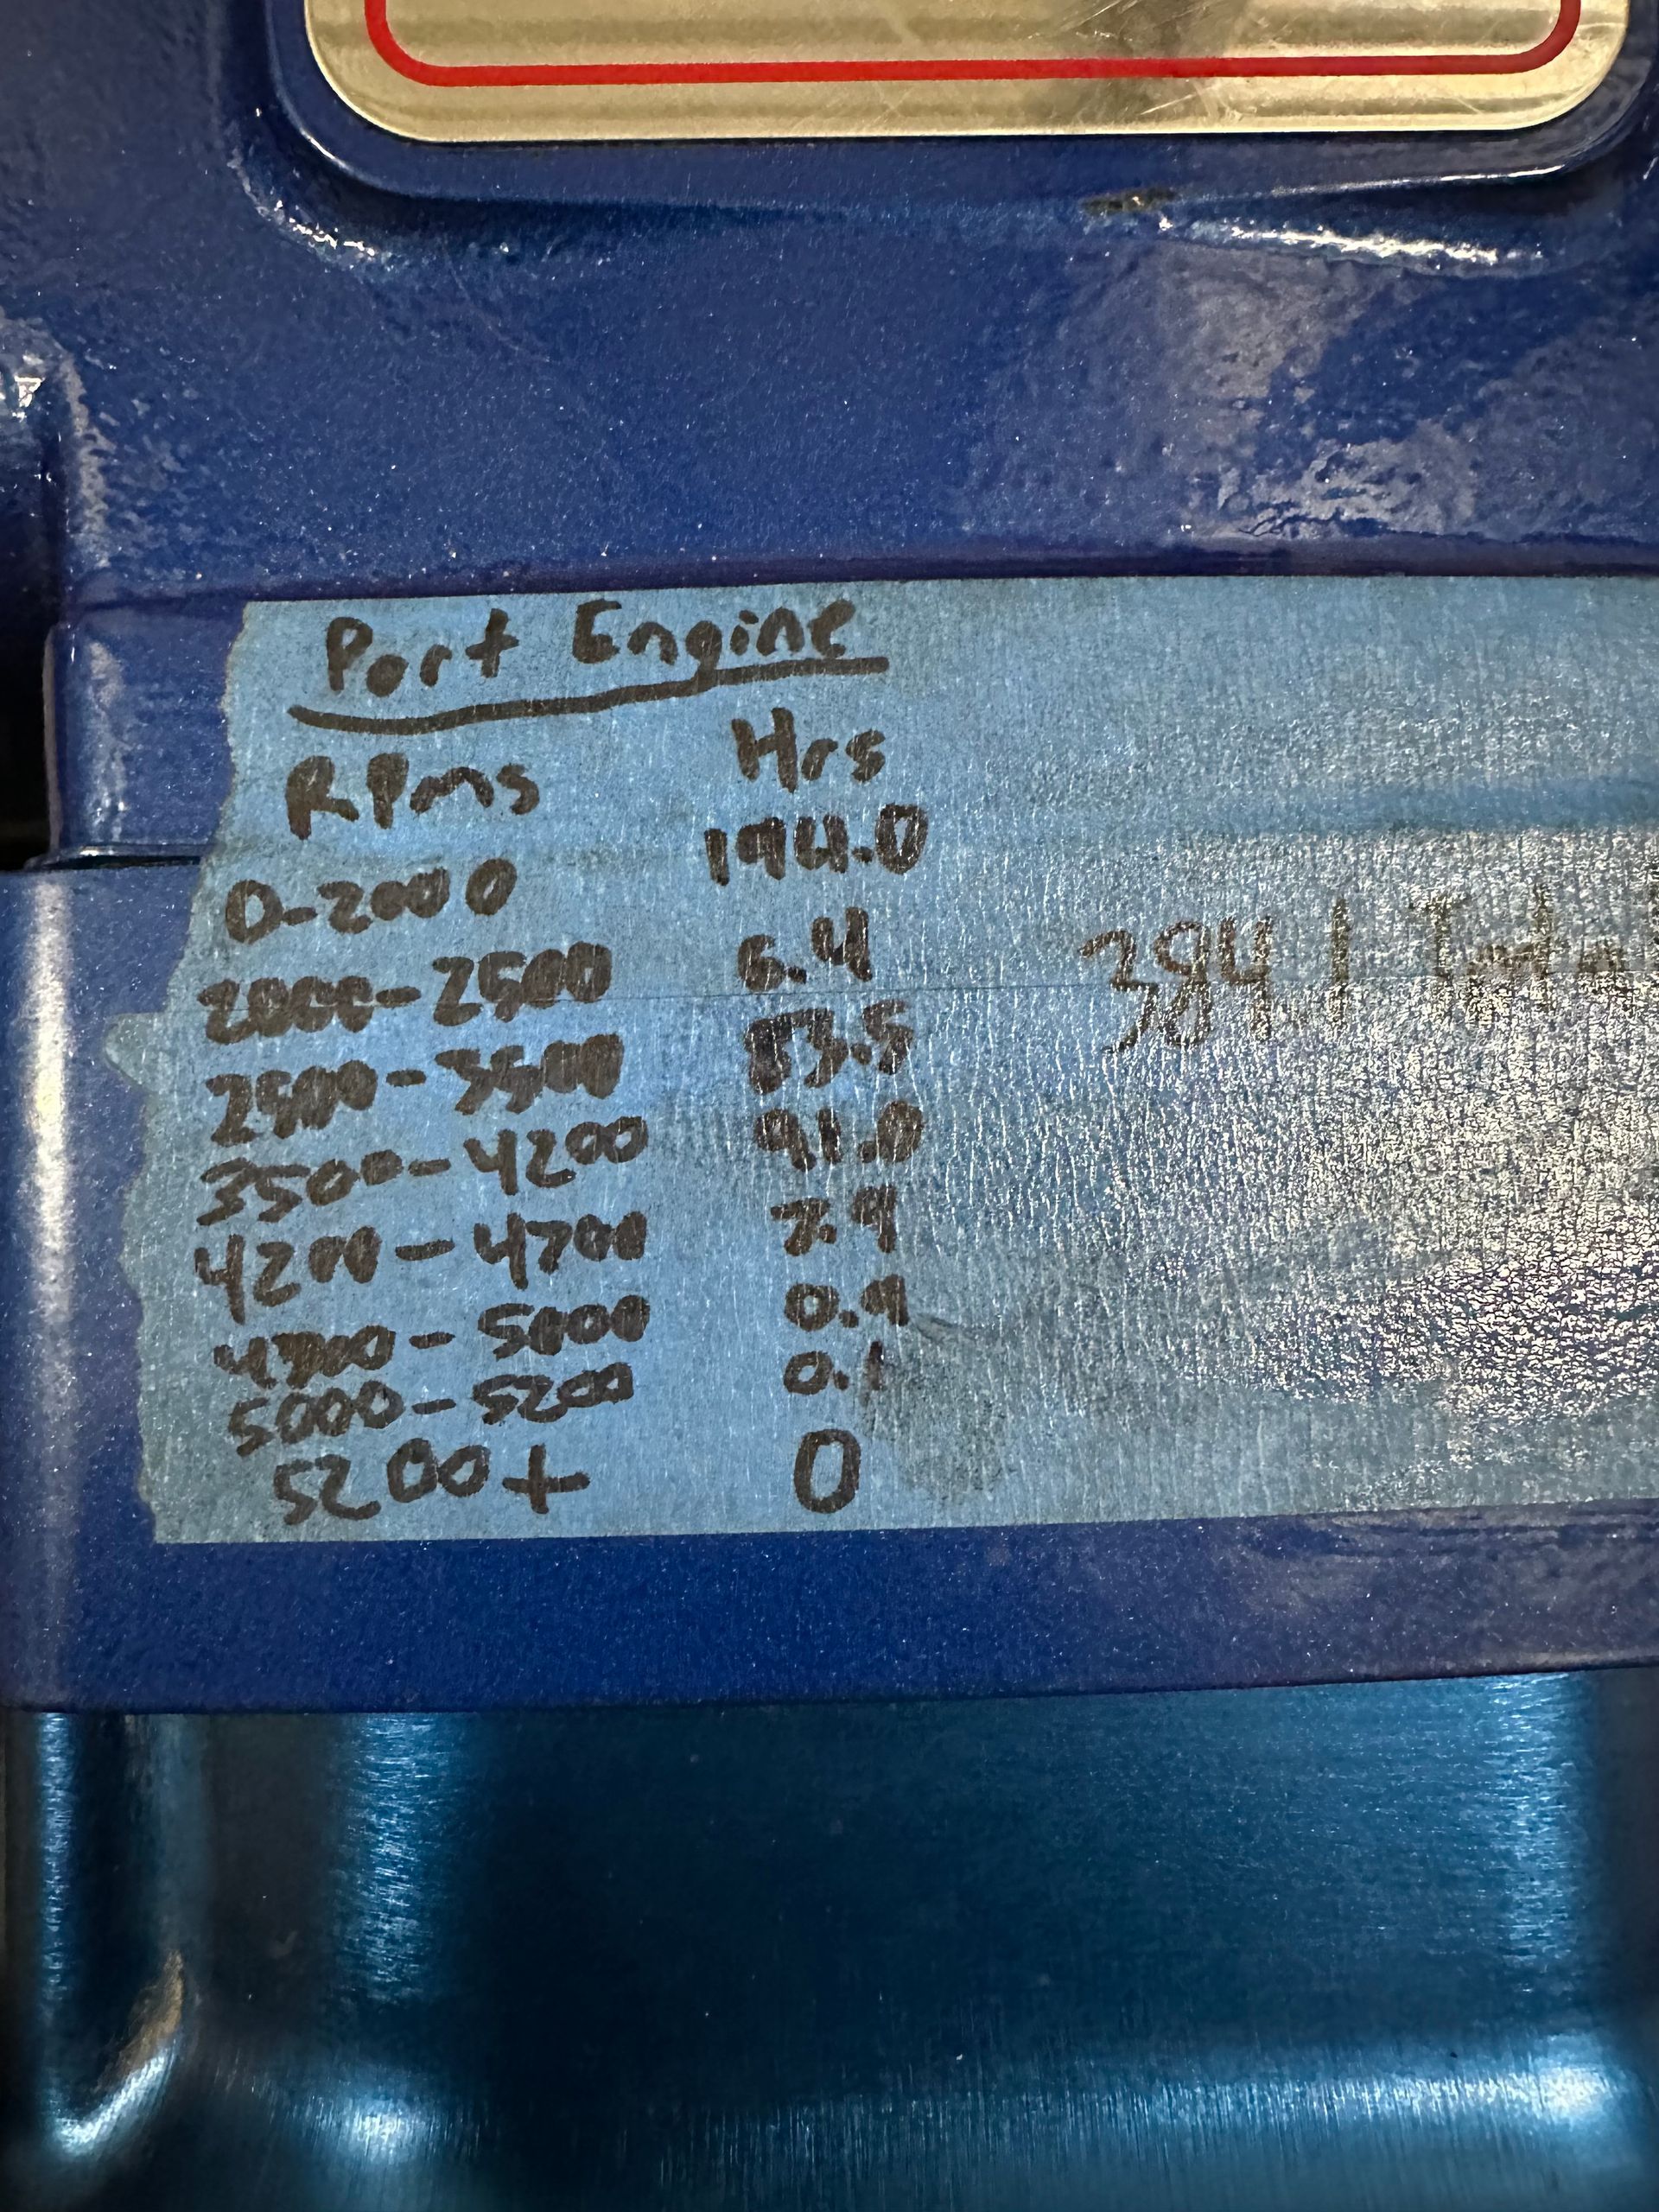 Port Engine
RPms Hrs
0-2000 194.0
2000-2500 6.4
2500-3500 83.5
3500-4200 91.0
384.1 Total
4200-4700 7.9
4700-5000 0.9
5000-5200 0.1
5200+ 0